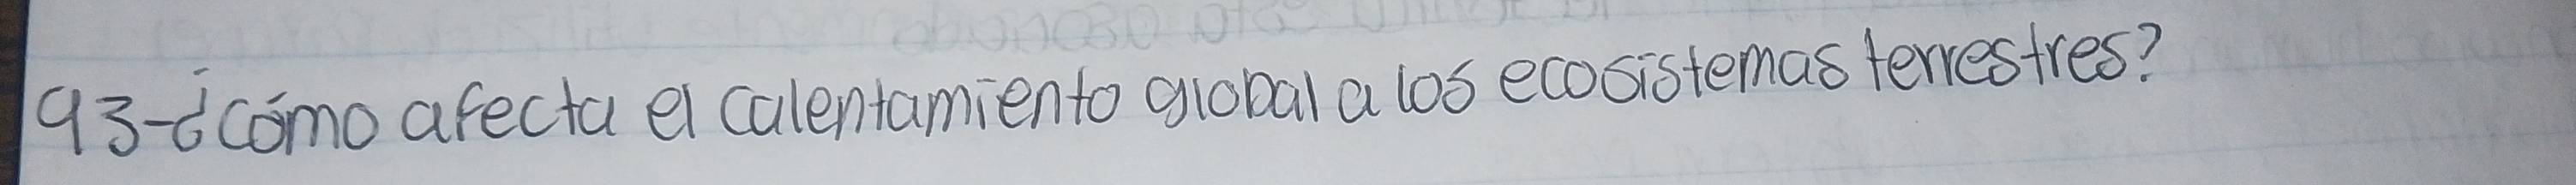 93-¿cómo afecta el calentamiento global a los ecosistemas terrestres?